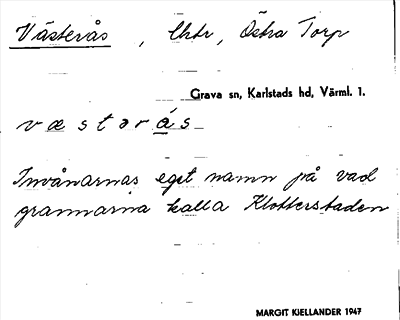 Västerås, lhtr, Östra Torp
Grava sn, Karlstads hd, Värml. l.
væstərás
Invånarnas eget namn på vad
grannarna kalla Klotterstaden
MARGIT KJELLANDER 1947